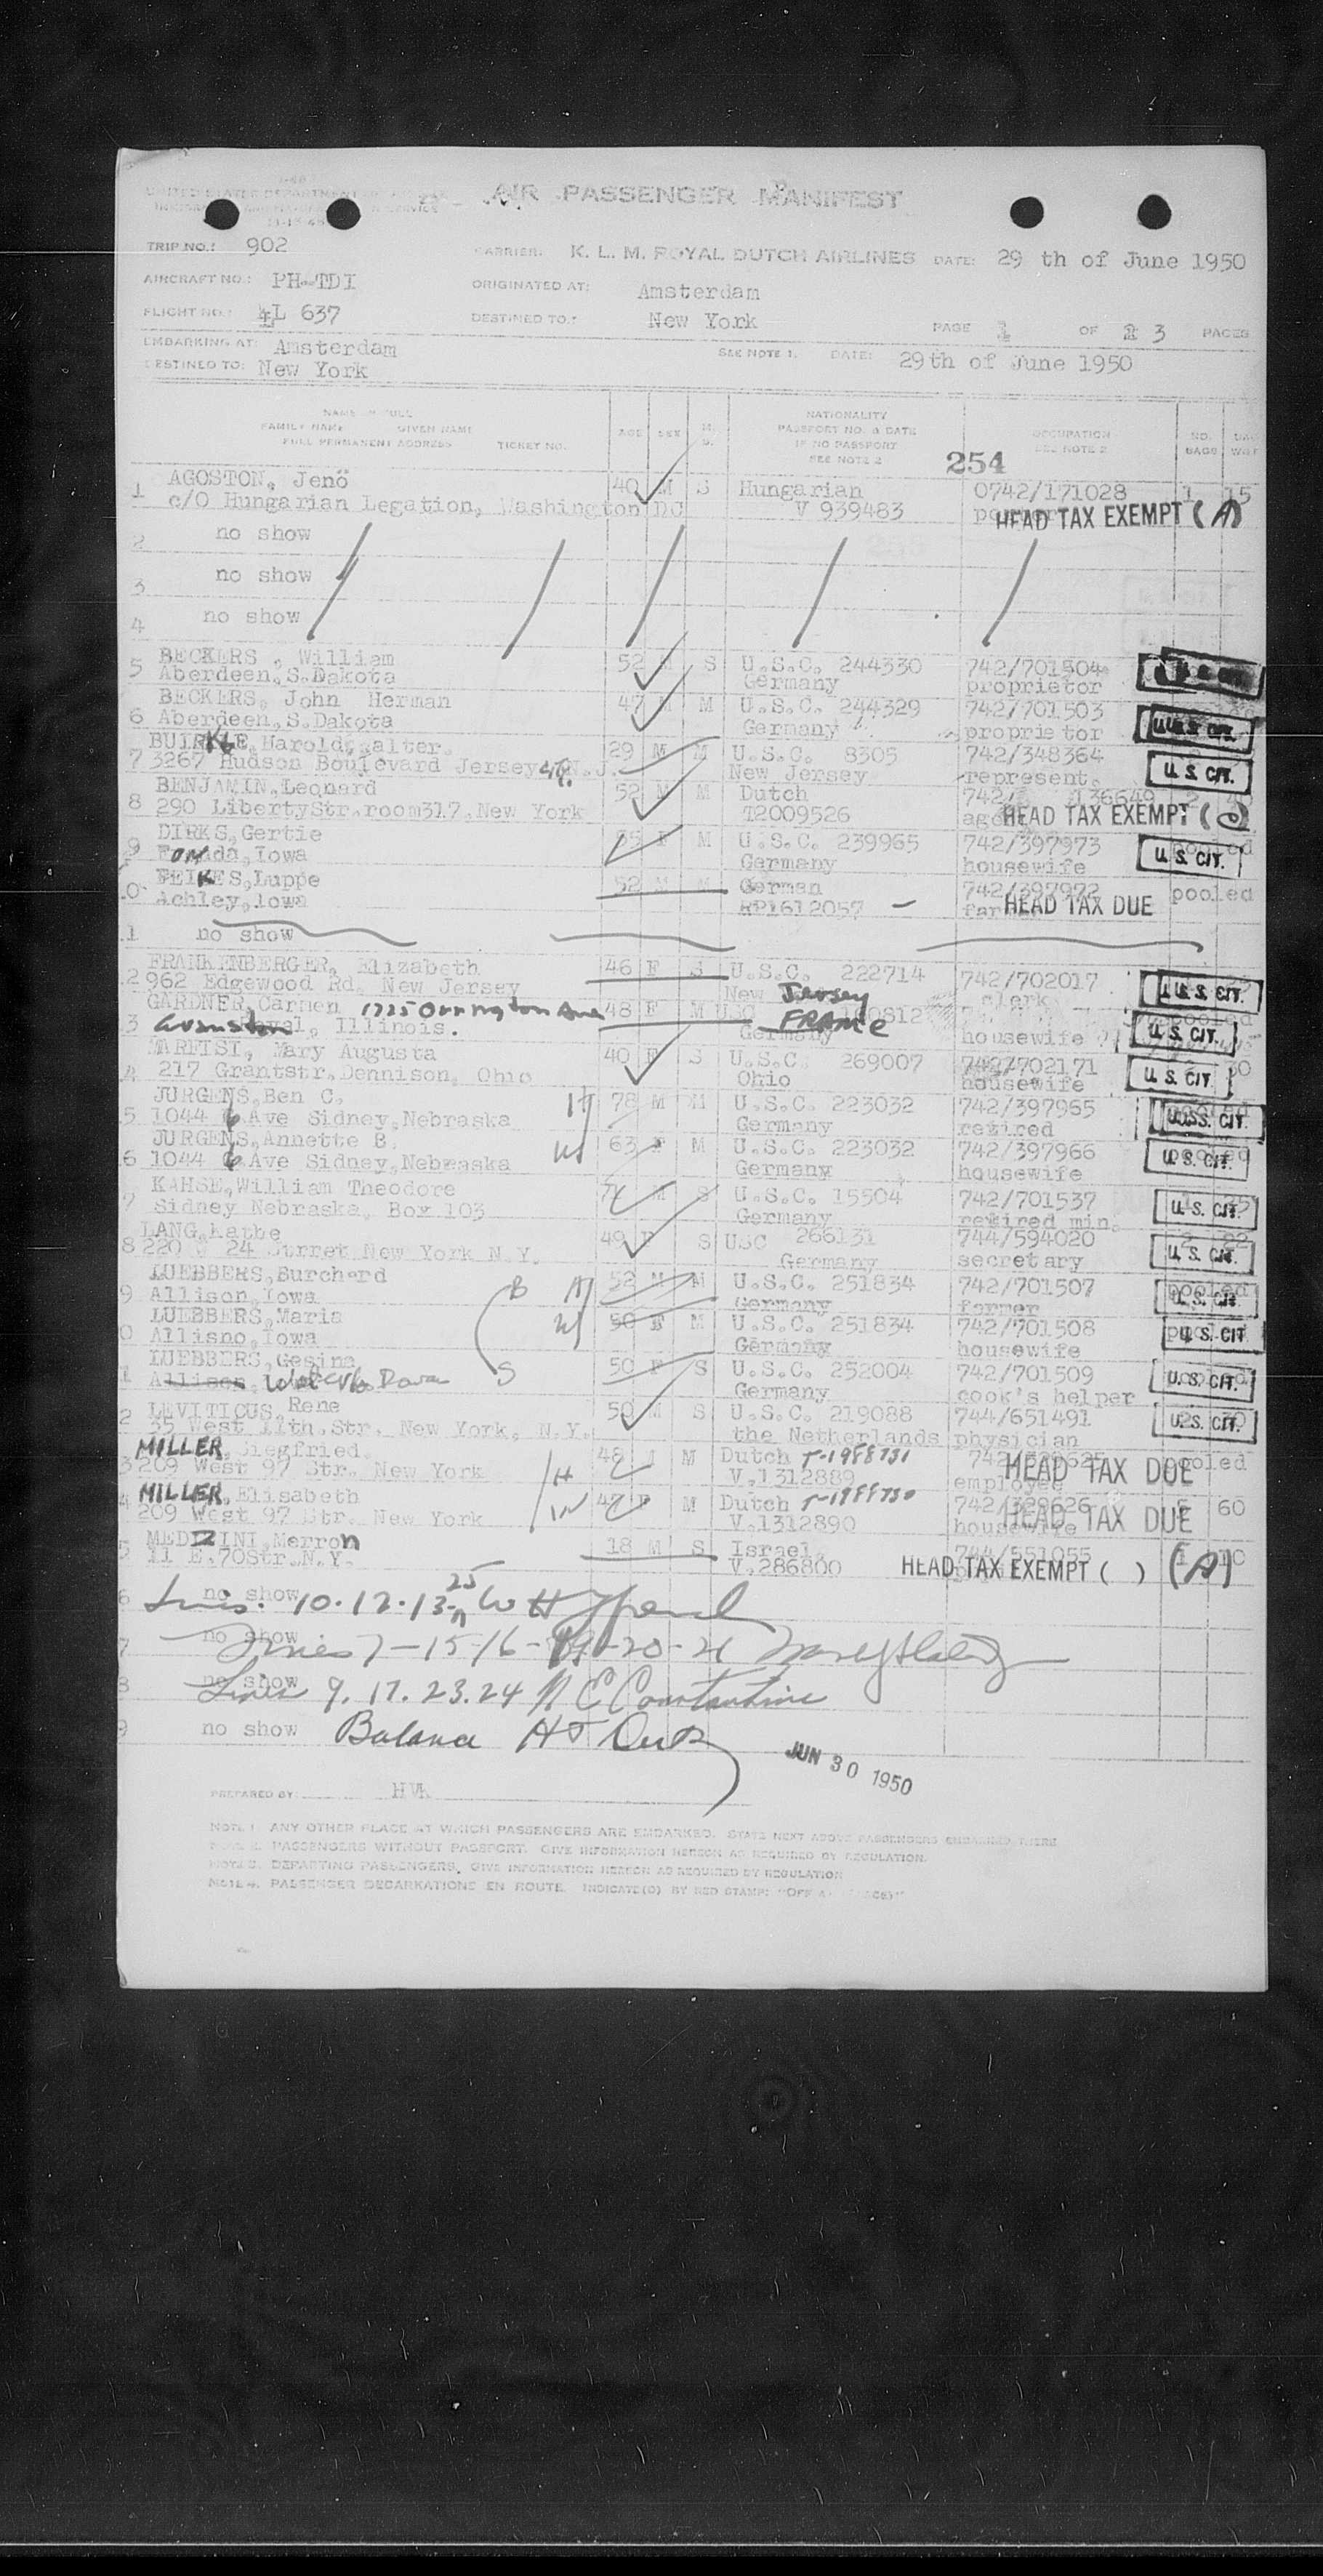 AIR PASSENGER MANIFEST
TRIP NO.: 902
CARRIER: K. L. M. ROYAL DUTCH AIRLINES DATE: 29 th of June 1950
AIRCRAFT NO.: PH-TDI
ORIGINATED AT: Amsterdam
FLIGHT NO.: KL 637
DESTINED TO.: New York
PAGE 1 OF 3 PAGES
EMBARKING AT: Amsterdam
SEE NOTE 1. DATE: 29th of June 1950
DESTINED TO: New York
NAME IN FULL
FAMILY NAME GIVEN NAME
FULL PERMANENT ADDRESS TICKET NO.
AGE SEX
NATIONALITY
PASSPORT NO. & DATE
IF NO PASSPORT
SEE NOTE 2
254
OCCUPATION
SEE NOTE 2
NO. BAGS
1 AGOSTON, Jenö 40 M S Hungarian 0742/171028 1 15
c/O Hungarian Legation, Washington DC V 939483 HEAD TAX EXEMPT (A)
2 no show
3 no show
4 no show
5 BECKERS , William 52 M S U.S.C. 244330 742/701504
Aberdeen,S.Dakota Germany proprietor
6 BECKERS, John Herman 47 M M U.S.C. 244329 742/701503
Aberdeen,S.Dakota Germany proprietor U.S. CIT.
7 BUIRKLE, Harold, alter. 29 M M U.S.C. 8305 742/348364
3267 Hudson Boulevard Jersey N.J. New Jersey represent. U.S. CIT.
8 BENJAMIN,Leonard 52 M M Dutch 742/ 136649
290 LibertyStr.room317.New York T2009526 HEAD TAX EXEMPT
9 DIRKS,Gertie 55 F M U.S.C. 239965 742/397973 pooled
Iowa Germany housewife U.S. CIT.
0 FEIKES,Luppe 52 M M German 742/397972 pooled
Achley,Iowa RP1612057 HEAD TAX DUE
1 no show
2 FRANKENBERGER, Elizabeth 46 F S U.S.C. 222714 742/702017
962 Edgewood Rd, New Jersey New Jersey clerk U.S. CIT.
3 GARDNER,Carmen 1725 Orrington Ave 48 F M USC
Evanston, Illinois. Germany FRANCE housewife U.S. CIT.
4 Mary Augusta 40 F S U.S.C 269007 742/702171 30
217 Grantstr.Dennison, Ohio Ohio housewife U.S. CIT.
5 JURGENS,Ben C. H 78 M M U.S.C. 223032 742/397965
1044 6 Ave Sidney,Nebraska Germany retired U.S. CIT.
6 JURGENS,Annette B. W 63 F M U.S.C. 223032 742/397966
1044 6 Ave Sidney,Nebraska Germany housewife U.S. CIT.
7 KAHSE,William Theodore M S U.S.C. 15504 742/701537
Sidney Nebraska, Box 103 Germany retired min. U.S. CIT.
8 LANG,Kathe 49 F S USC 266131 744/594020
220 24 Strret New York N.Y. Germany secretary U.S. CIT.
9 LUEBBERS,Burchard B H 52 M M U.S.C. 251834 742/701507
Allison,Iowa Germany farmer U.S. CIT.
0 LUEBBERS,Maria W 50 F M U.S.C. 251834 742/701508
Allisno,Iowa Germany housewife U.S. CIT.
1 LUEBBERS,Gesina S 50 F S U.S.C. 252004 742/701509
Allison, Germany cook's helper U.S. CIT.
2 LEVITICUS, Rene 50 M S U.S.C. 219088 744/651491
35 West 11th.Str. New York, N.Y. the Netherlands physician U.S. CIT.
3 MILLER, Siegfried. H 48 M Dutch T-1988731 pooled
209 West 97 Str. New York V.1312889 employee HEAD TAX DUE
4 MILLER, Elisabeth W 47 F M Dutch 742/329626 60
209 West 97 Str. New York V.1312890 housewife HEAD TAX DUE
5 MEDZINI,Merron 18 M S Israel 744/551055 1 10
11 E.70Str.N.Y. V.286800 HEAD TAX EXEMPT ( ) (A)
6 no show
Lines. 10.12.13 25
7 no show
Lines 7-15-16-19-20-21
8 no show
Lines 9.17.23.24 N E Constantine
9 no show
Balance
JUN 30 1950
PREPARED BY
NOTE 1. ANY OTHER PLACE AT WHICH PASSENGERS ARE EMBARKED. STATE NEXT ABOVE PASSENGERS EMBARKED THERE.
NOTE 2. PASSENGERS WITHOUT PASSPORT. GIVE INFORMATION HEREON AS REQUIRED BY REGULATION.
NOTE 3. DEPARTING PASSENGERS, GIVE INFORMATION HEREON AS REQUIRED BY REGULATION
NOTE 4. PASSENGER DEBARKATIONS EN ROUTE. INDICATE(D) BY RED STAMP: